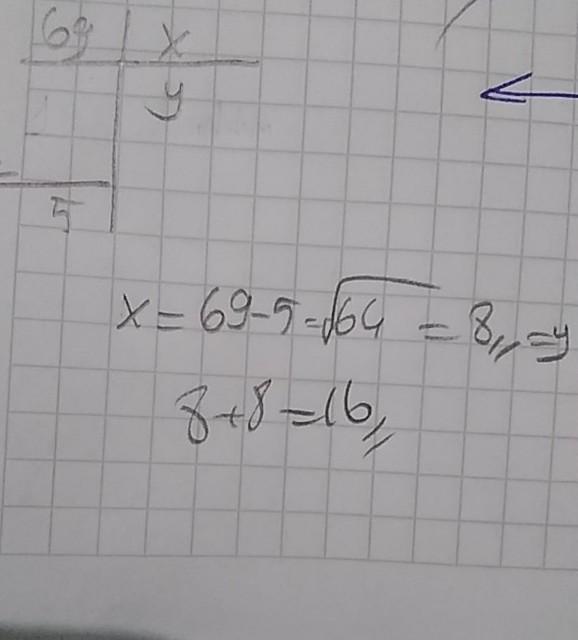 69 x
y
5
x = 69-5=√64 = 8,, =y
8+8=16,,